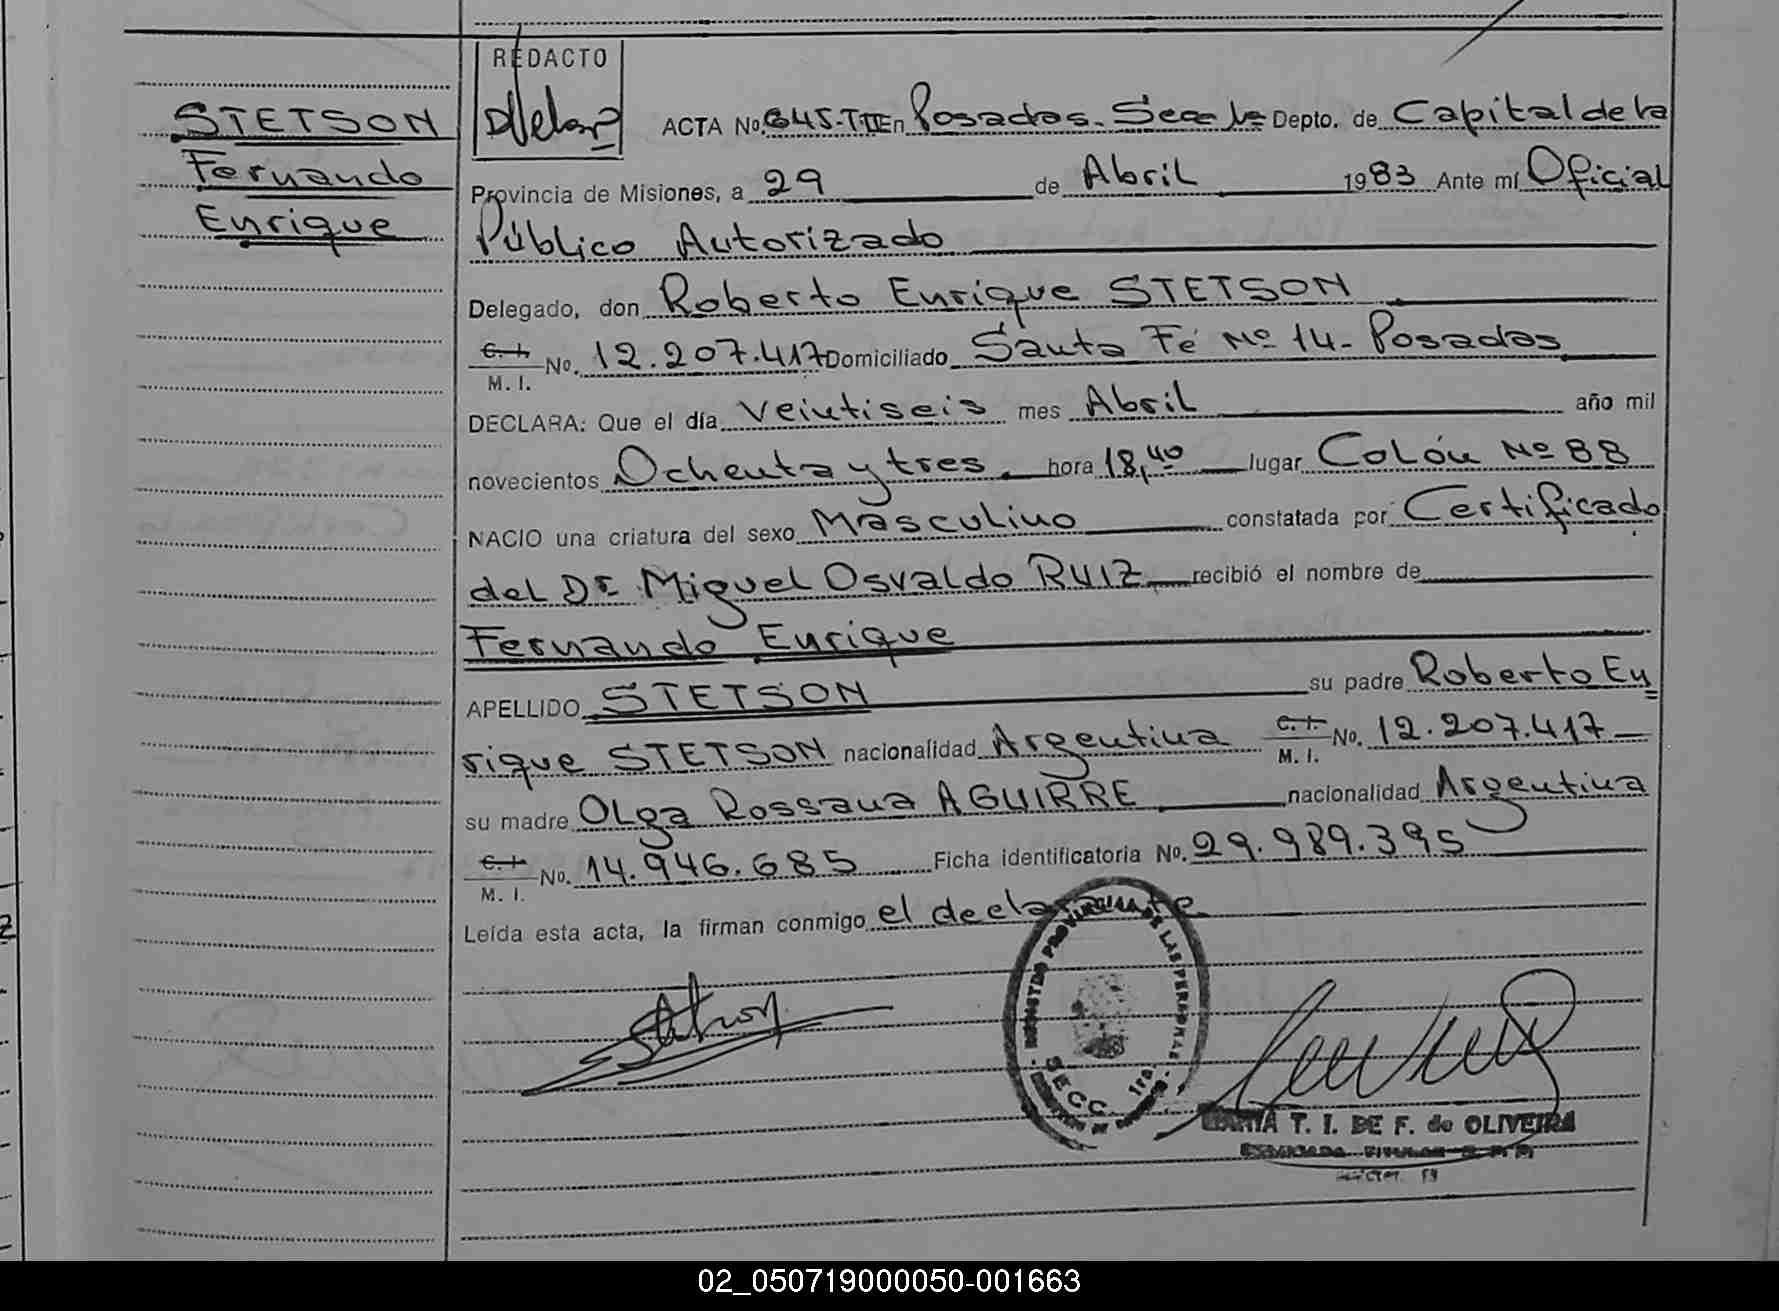 STETSON
Fernando
Enrique
REDACTO
ACTA No. 645-T III En Posadas. Secc 1a Depto. de Capital de la
Provincia de Misiones, a 29 de Abril 1983 Ante mí Oficial
Público Autorizado
Delegado, don Roberto Enrique STETSON
C. I.
M. I. No. 12.207.417 Domiciliado Santa Fé Nº 14- Posadas
DECLARA: Que el día veintiseis mes Abril año mil
novecientos Ochenta y tres. hora 18,40 lugar Colón Nº 88
NACIO una criatura del sexo Masculino constatada por Certificado
del Dr. Miguel Osvaldo RUIZ recibió el nombre de
Fernando Enrique
APELLIDO STETSON su padre Roberto En
rique STETSON nacionalidad Argentina C. I.
M. I. No. 12.207.417
su madre OLga Rossana AGUIRRE nacionalidad Argentina
C. I.
M. I. No. 14.946.685 Ficha identificatoria No. 29.989.395
Leída esta acta, la firman conmigo el declarante
REGISTRO PROVINCIAL DE LAS PERSONAS
SECC. 1ra.
MARTA T. I. DE F. de OLIVEIRA
02_050719000050-001663